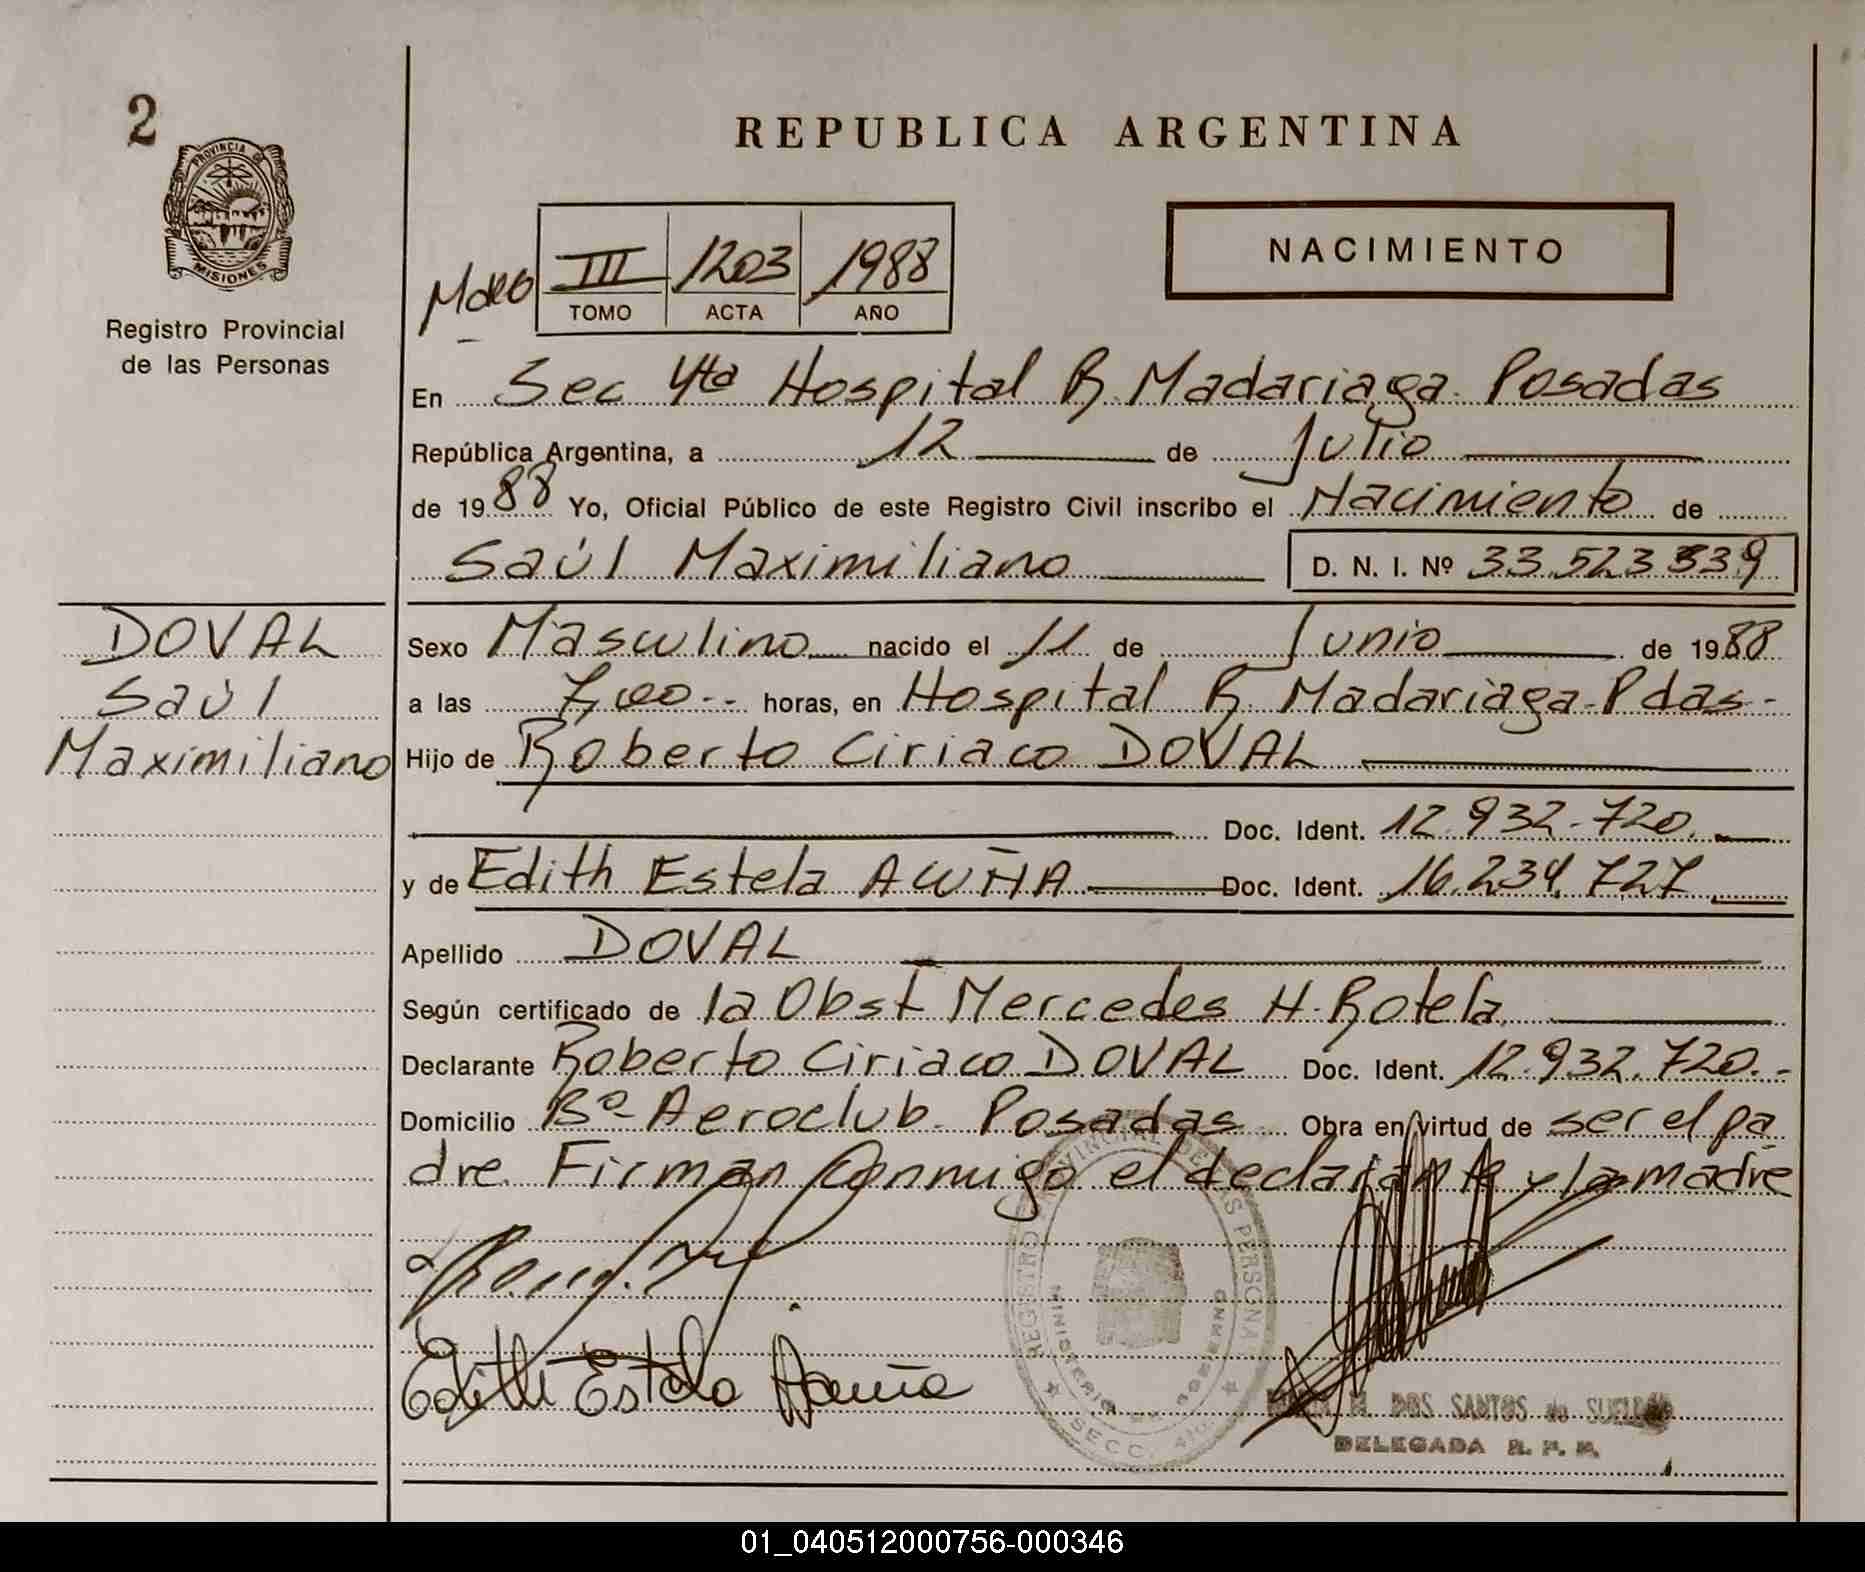 2
PROVINCIA DE
MISIONES
Registro Provincial
de las Personas
REPUBLICA ARGENTINA
III 1203 1988
TOMO ACTA AÑO
NACIMIENTO
En Sec 4ta Hospital R. Madariaga. Posadas
República Argentina, a 12 de Julio
de 1988 Yo, Oficial Público de este Registro Civil inscribo el Nacimiento de
Saúl Maximiliano D. N. I. Nº 33.523.339
DOVAL
Saúl
Maximiliano
Sexo Masculino nacido el 11 de Junio de 1988
a las 7,00-- horas, en Hospital R. Madariaga-Pdas-
Hijo de Roberto Ciriaco DOVAL
Doc. Ident. 12.932.720.
y de Edith Estela ACUÑA Doc. Ident. 16.234.727
Apellido DOVAL
Según certificado de la Obst Mercedes H. Rotela
Declarante Roberto Ciriaco DOVAL Doc. Ident. 12.932.720.-
Domicilio Bº Aeroclub. Posadas Obra en virtud de ser el pa
dre. Firman Conmigo el declarante y la madre
Edith Estela Acuña
REGISTRO PROVINCIAL DE LAS PERSONAS
MINISTERIO DE GOBIERNO
SECC. 4ta
M. DOS SANTOS de
DELEGADA R. P. P.
01_040512000756-000346